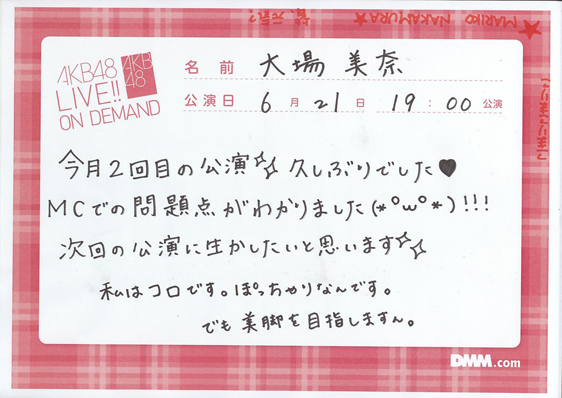 ★MARIKO NAKAMURA★ 皆、元気?
AKB48
LIVE!!
ON DEMAND
AKB
48
名前 大場 美奈
公演日 6月21日 19:00公演
今月2回目の公演☆☆ 久しぶりでした♥
MCでの問題点がわかりました(*°ω°*)!!!
次回の公演に生かしたいと思います☆☆
私はコロです。ぽっちゃりなんです。
でも美脚を目指しますん。
DMM.com